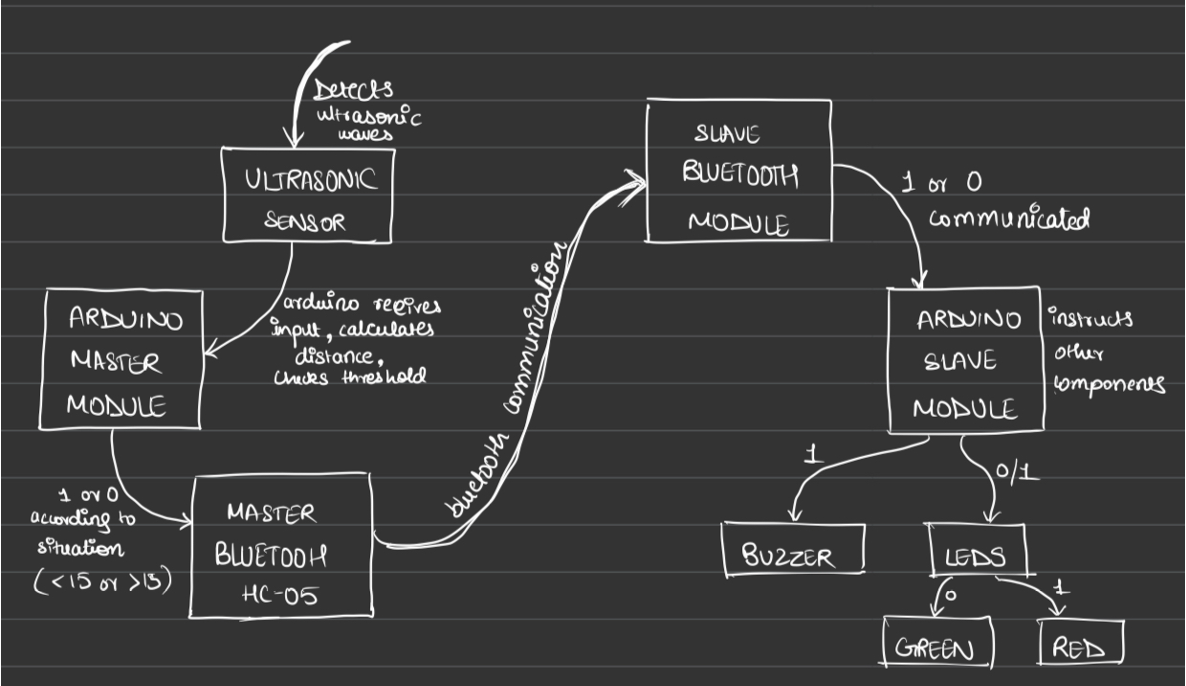 Detects
ultrasonic
waves
ULTRASONIC
SENSOR
arduino recives
input, calculates
distance,
checks threshold
ARDUINO
MASTER
MODULE
1 or 0
according to
situation
(<15 or >15)
MASTER
BLUETOOH
HC-05
bluetooth communication
SLAVE
BLUETOOTH
MODULE
1 or 0
communicated
ARDUINO
SLAVE
MODULE
instructs
other
components
1
0/1
BUZZER
LEDS
0
1
GREEN
RED